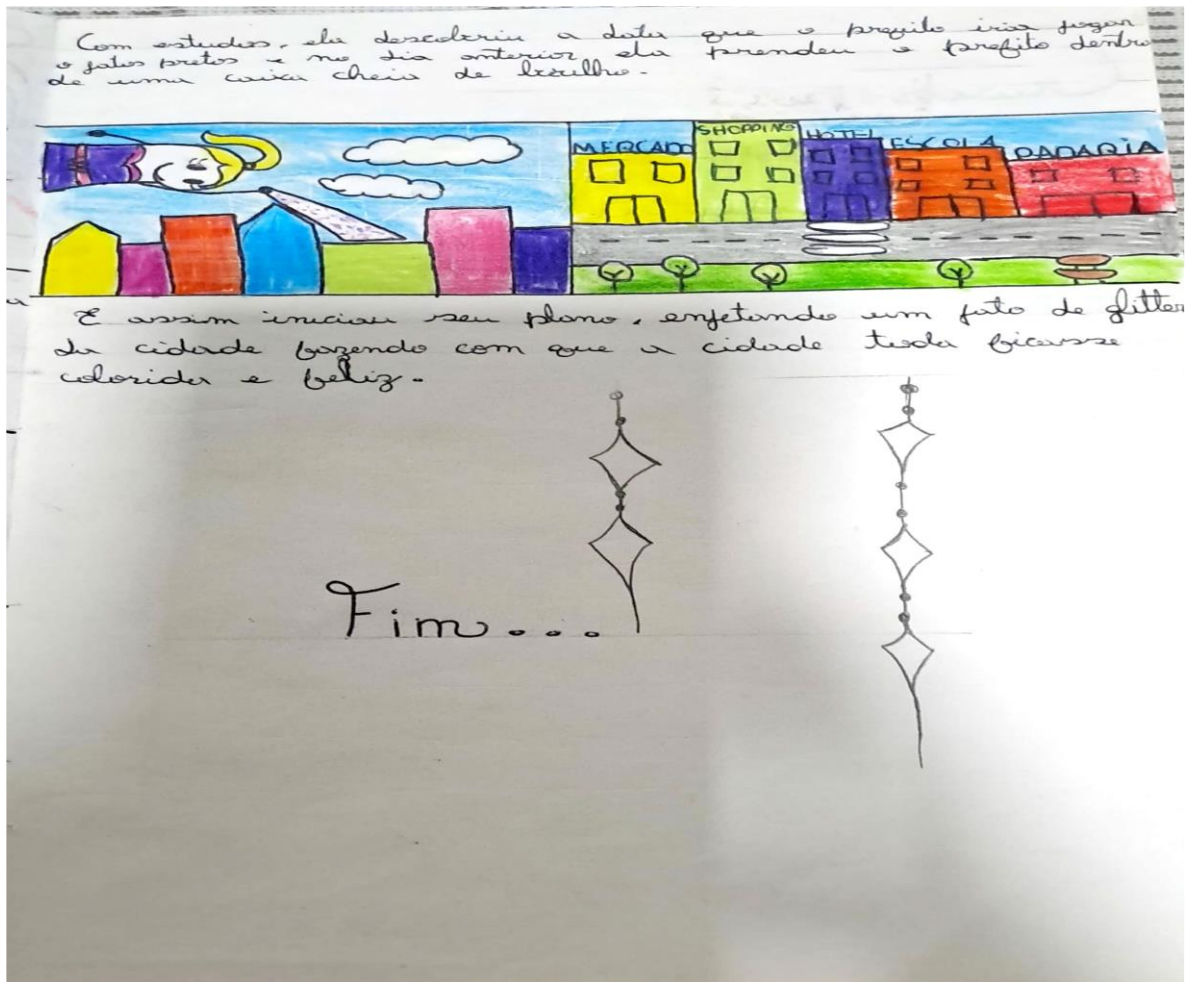 Com estudos, ela descobriu a data que o prefeito iria jogar
o jatos pretos e no dia anterior ela prendeu o prefito dentro
de uma caixa cheia de brilho.
MERCADO
SHOPPING
HOTEL
ESCOLA
PADARIA
E assim iniciou seu plano, enjetando um jato de glitter
da cidade fazendo com que a cidade tuda ficasse
colorida e feliz.
Fim...